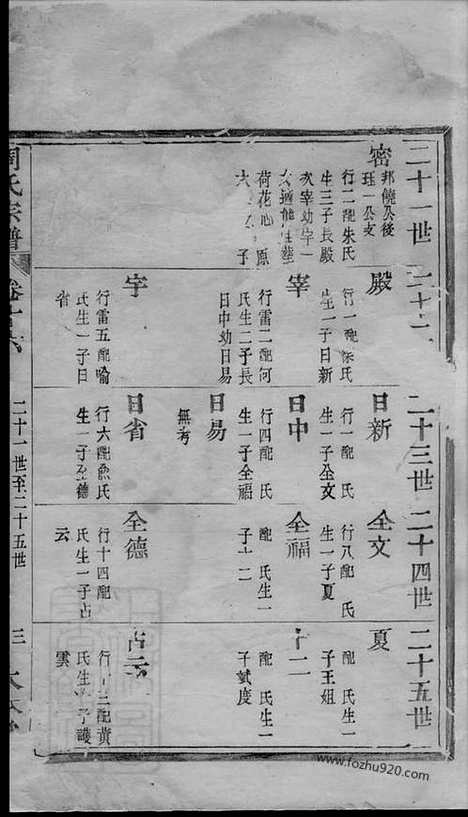 二十一世
密
邦饒公後
珏一公支
行二配朱氏
生三子長殿
次宰幼宇一
荷花心 原
二十二
殿
行一配 氏
生一子日新
宰
行雷二配何
氏生二子長
日中幼日易
宇
行雷五配喻
氏生一子日
省
二十三世
日新
行一配 氏
生一子全文
日中
行四配 氏
生一子全福
日易
無考
日省
行六配 氏
生一子全德
二十四世
全文
行八配 氏
生一子夏
全福
配 氏生一
子十二
全德
行十四配
氏生一子占
云
二十五世
夏
配 氏生一
子王姐
十二
配 氏生一
子斌度
占云
行 三配黃
氏生一子護
雲
周氏宗譜
卷十
二十一世至二十五世
三
www.fozhu920.com